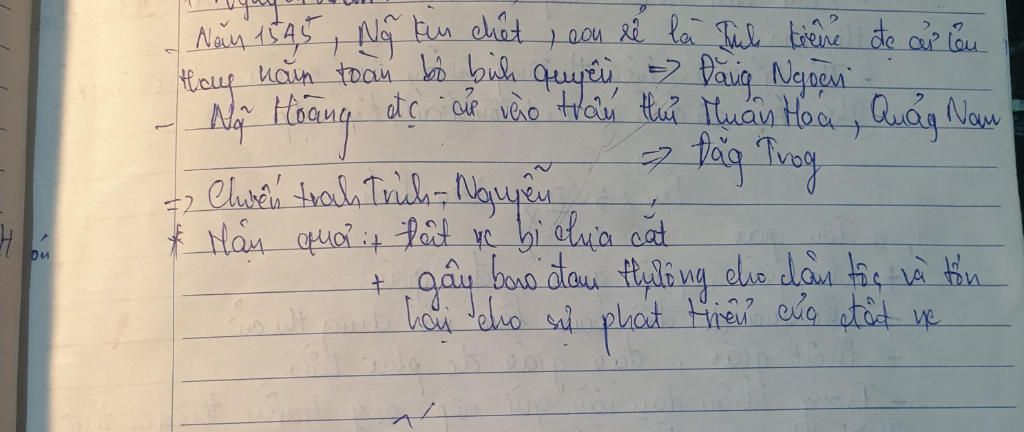 - Năm 1545, Ng~ Kim chết, con rể là Trịnh Kiểm đc cử lên
thay nắm toàn bộ binh quyền => Đàng Ngoài
- Ng~ Hoàng đc cử vào trấn thủ Thuận Hoá, Quảng Nam
=> Đàg Trog
=> Chiến tranh Trịnh - Nguyễn
* Hậu quả: + Đất nc bị chia cắt
+ gây bao đau thương cho dân tộc và tổn
hại cho sự phát triển của đất nc